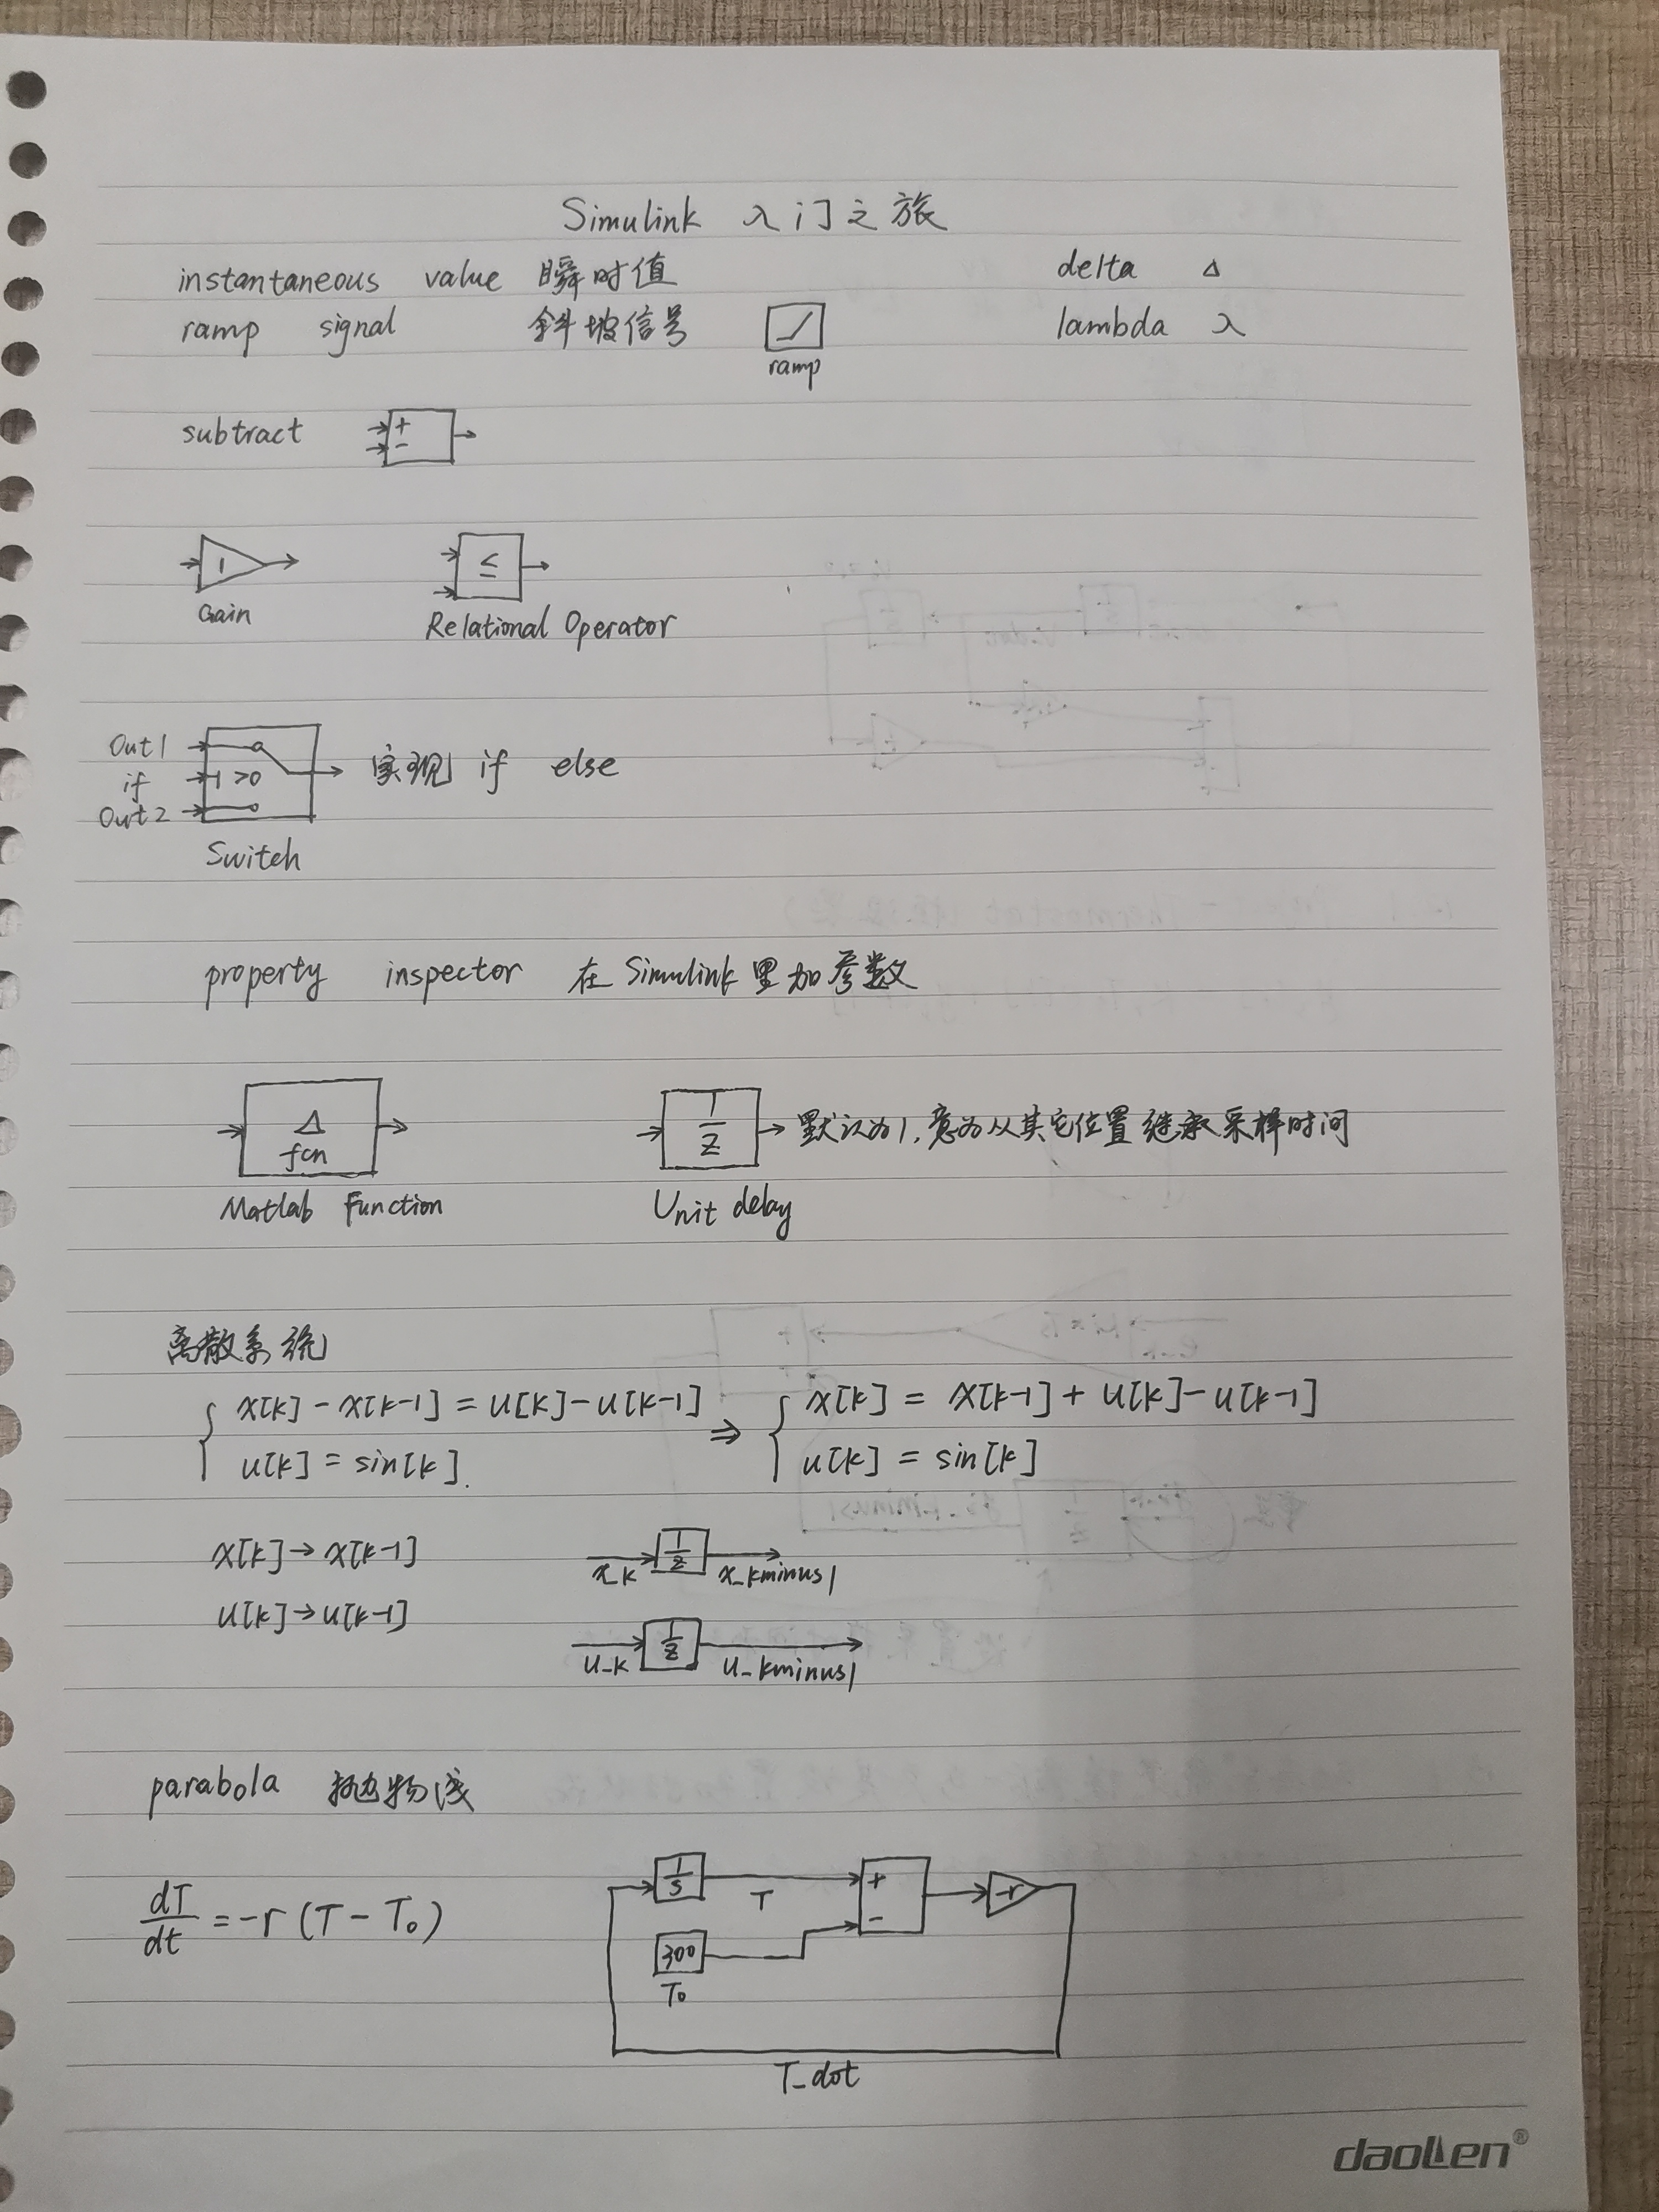 Simulink 入门之旅
instantaneous value 瞬时值 delta Δ
ramp signal 斜坡信号 lambda λ
ramp
subtract + -
1 ≤
Gain Relational Operator
Out1
if >0 实现 if else
Out2
Switch
property inspector 在Simulink里加参数
Δ
fcn
1/z 默认为1,意为从其它位置继承采样时间
Matlab Function Unit delay
离散系统
x[k] - x[k-1] = u[k] - u[k-1] ⇒ x[k] = x[k-1] + u[k] - u[k-1]
u[k] = sin[k]. u[k] = sin[k]
x[k] → x[k-1] x_k 1/z x_kminus1
u[k] → u[k-1] u_k 1/z u_kminus1
parabola 抛物线
dT/dt = -r (T - T₀) 1/s T + - -r
300
T₀
T_dot
daoLen®